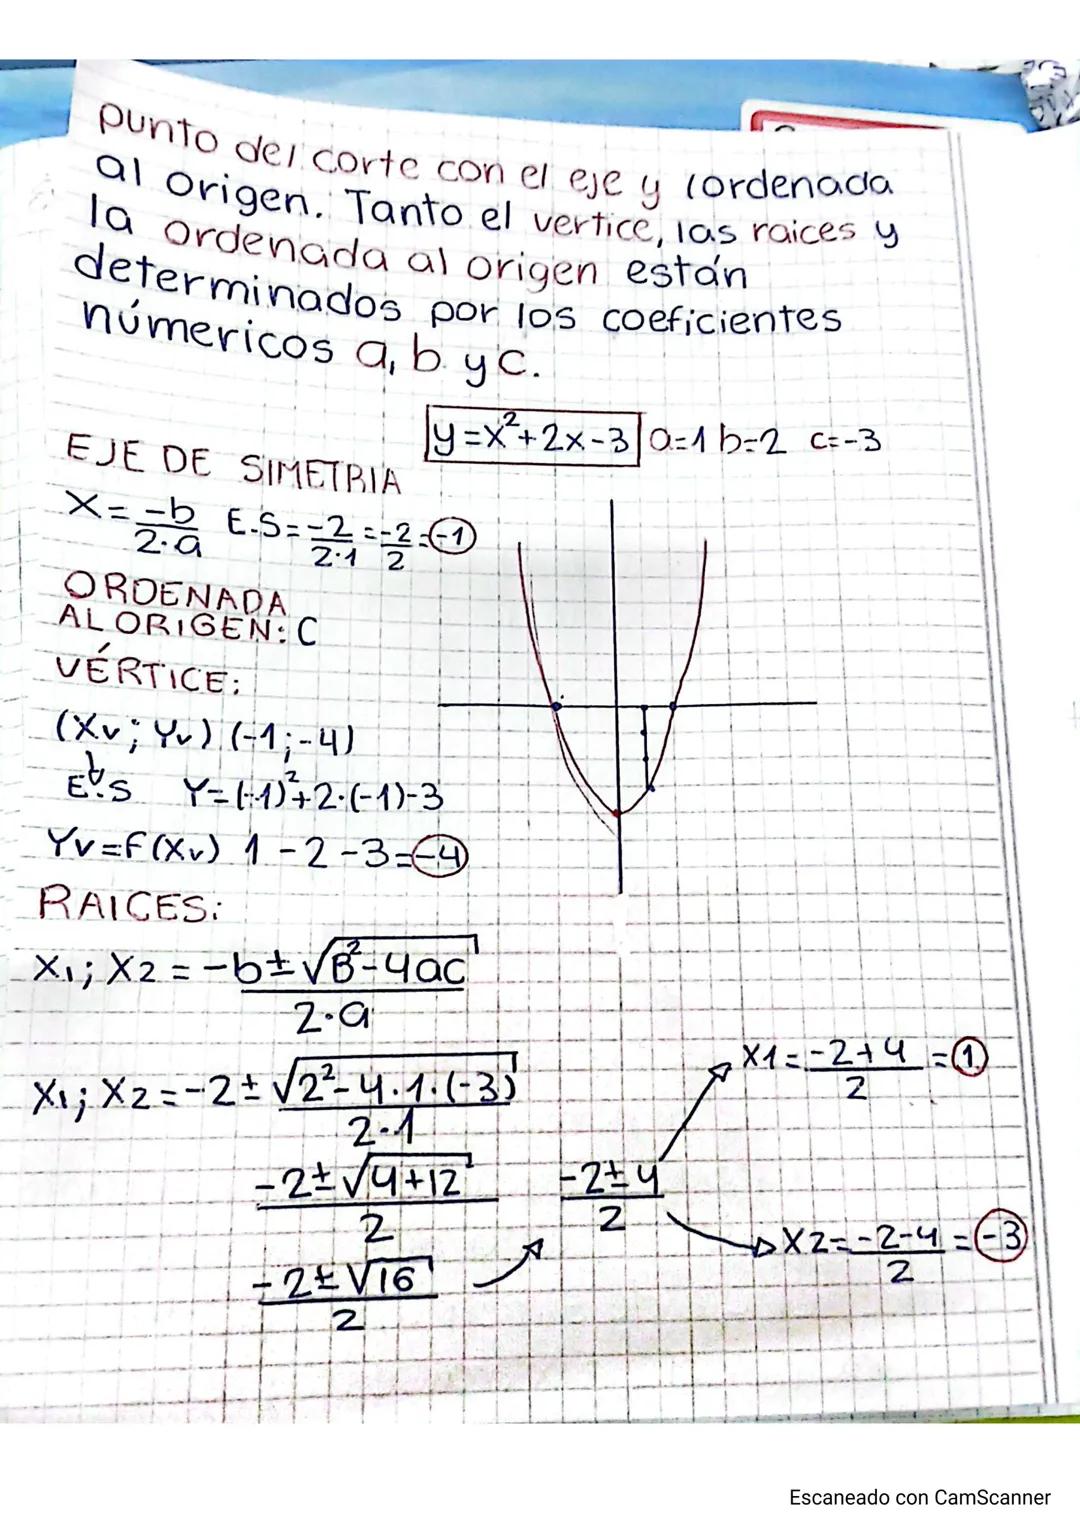 punto del corte con el eje y (ordenada
al origen. Tanto el vertice, las raices y
la ordenada al origen están
determinados por los coeficientes
númericos a, b y c.
y=x²+2x-3 a=1 b=2 c=-3
EJE DE SIMETRIA
X=-b/2·a E.S=-2/2·1=-2/2=-1
ORDENADA
AL ORIGEN: C
VÉRTICE:
(Xv; Yv) (-1;-4)
E.S Y=(-1)²+2·(-1)-3
Yv=F(Xv) 1-2-3=-4
RAICES:
X₁; X₂ = -b±√B²-4ac / 2·a
X₁; X₂ = -2±√2²-4·1·(-3) / 2·1
X1=-2+4/2=1
-2±√4+12 / 2
-2±4 / 2
X2=-2-4/2=-3
-2±√16 / 2
Escaneado con CamScanner